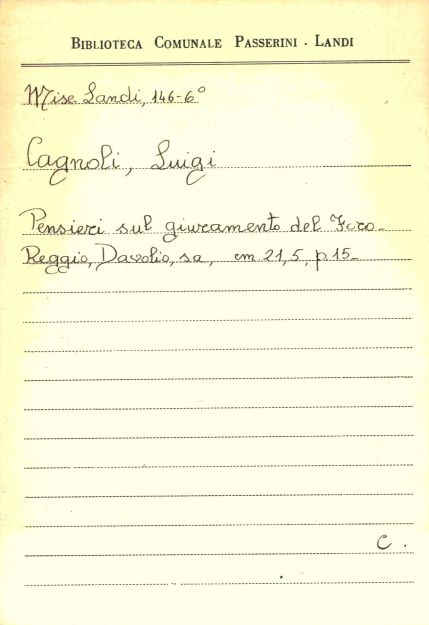 BIBLIOTECA COMUNALE PASSERINI - LANDI
Misc. Landi, 146-6°
Cagnoli, Luigi
Pensieri sul giuramento del Foro-
Reggio, Davolio, sa, cm 21,5, p 15-
C.